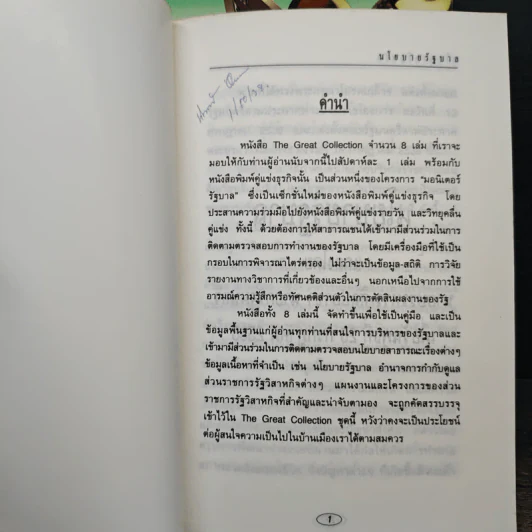 นโยบายรัฐบาล
คำนำ
หนังสือ The Great Collection จำนวน 8 เล่ม ที่เราจะ
มอบให้กับท่านผู้อ่านนับจากนี้ไปสัปดาห์ละ 1 เล่ม พร้อมกับ
หนังสือพิมพ์คู่แข่งธุรกิจนั้น เป็นส่วนหนึ่งของโครงการ "มอนิเตอร์
รัฐบาล" ซึ่งเป็นเซ็กชั่นใหม่ของหนังสือพิมพ์คู่แข่งธุรกิจ โดย
ประสานความร่วมมือไปยังหนังสือพิมพ์คู่แข่งรายวัน และวิทยุคลื่น
คู่แข่ง ทั้งนี้ ด้วยต้องการให้สาธารณชนได้เข้ามามีส่วนร่วมในการ
ติดตามตรวจสอบการทำงานของรัฐบาล โดยมีเครื่องมือที่ใช้เป็น
กรอบในการพิจารณาไตร่ตรอง ไม่ว่าจะเป็นข้อมูล-สถิติ การวิจัย
รายงานทางวิชาการที่เกี่ยวข้องและอื่นๆ นอกเหนือไปจากการใช้
อารมณ์ความรู้สึกหรือทัศนคติส่วนตัวในการตัดสินผลงานของรัฐ
หนังสือทั้ง 8 เล่มนี้ จัดทำขึ้นเพื่อใช้เป็นคู่มือ และเป็น
ข้อมูลพื้นฐานแก่ผู้อ่านทุกท่านที่สนใจการบริหารของรัฐบาลและ
เข้ามามีส่วนร่วมในการติดตามตรวจสอบนโยบายสาธารณะเรื่องต่างๆ
ข้อมูลเนื้อหาที่จำเป็น เช่น นโยบายรัฐบาล อำนาจการกำกับดูแล
ส่วนราชการรัฐวิสาหกิจต่างๆ แผนงานและโครงการของส่วน
ราชการรัฐวิสาหกิจที่สำคัญและน่าจับตามอง จะถูกคัดสรรบรรจุ
เข้าไว้ใน The Great Collection ชุดนี้ หวังว่าคงจะเป็นประโยชน์
ต่อผู้สนใจความเป็นไปในบ้านเมืองเราได้ตามสมควร
1